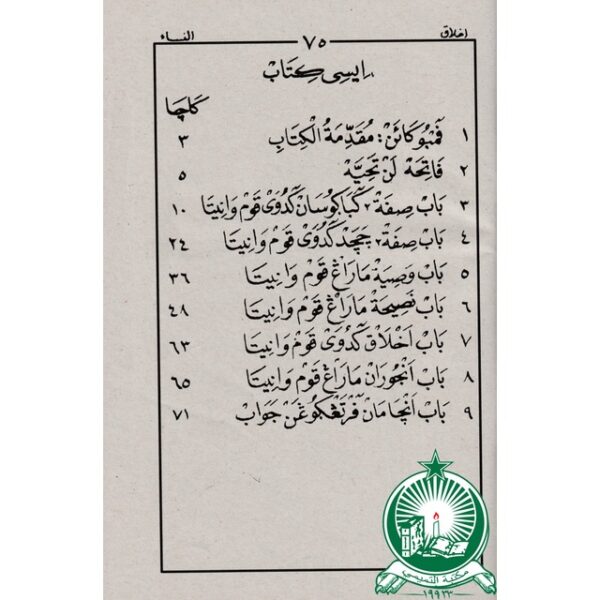 اخلاق ٧٥ النساء
ايسى كتاب
كاچا
١ فمبوكائن : مُقَدِّمَةُ الْكِتَابِ ٣
٢ فَاتِحَةْ لَنْ تَحِيَّةْ ٥
٣ بَابْ صِفَةْ٢ كَبَاكُوسَانْ كَدُوَىْ قَوْمْ وَانِيتَا ١٠
٤ بَابْ صِفَةْ٢ چَچَدْ كَدُوَىْ قَوْمْ وَانِيتَا ٢٤
٥ بَابْ وَصِيَةْ مَارَاڠْ قَوْمْ وَانِيتَا ٣٦
٦ بَابْ نَصِيحَةْ مَارَاڠْ قَوْمْ وَانِيتَا ٤٨
٧ بَابْ اَخْلَاقْ كَدُوَىْ قَوْمْ وَانِيتَا ٦٣
٨ بَابْ اَنْجُورَانْ مَارَاڠْ قَوْمْ وَانِيتَا ٦٥
٩ بَابْ اَنْچَامَانْ فَرْتَڠْكُوڠَنْ جَوَابْ ٧١
مكتبة
١٩٩٢٣